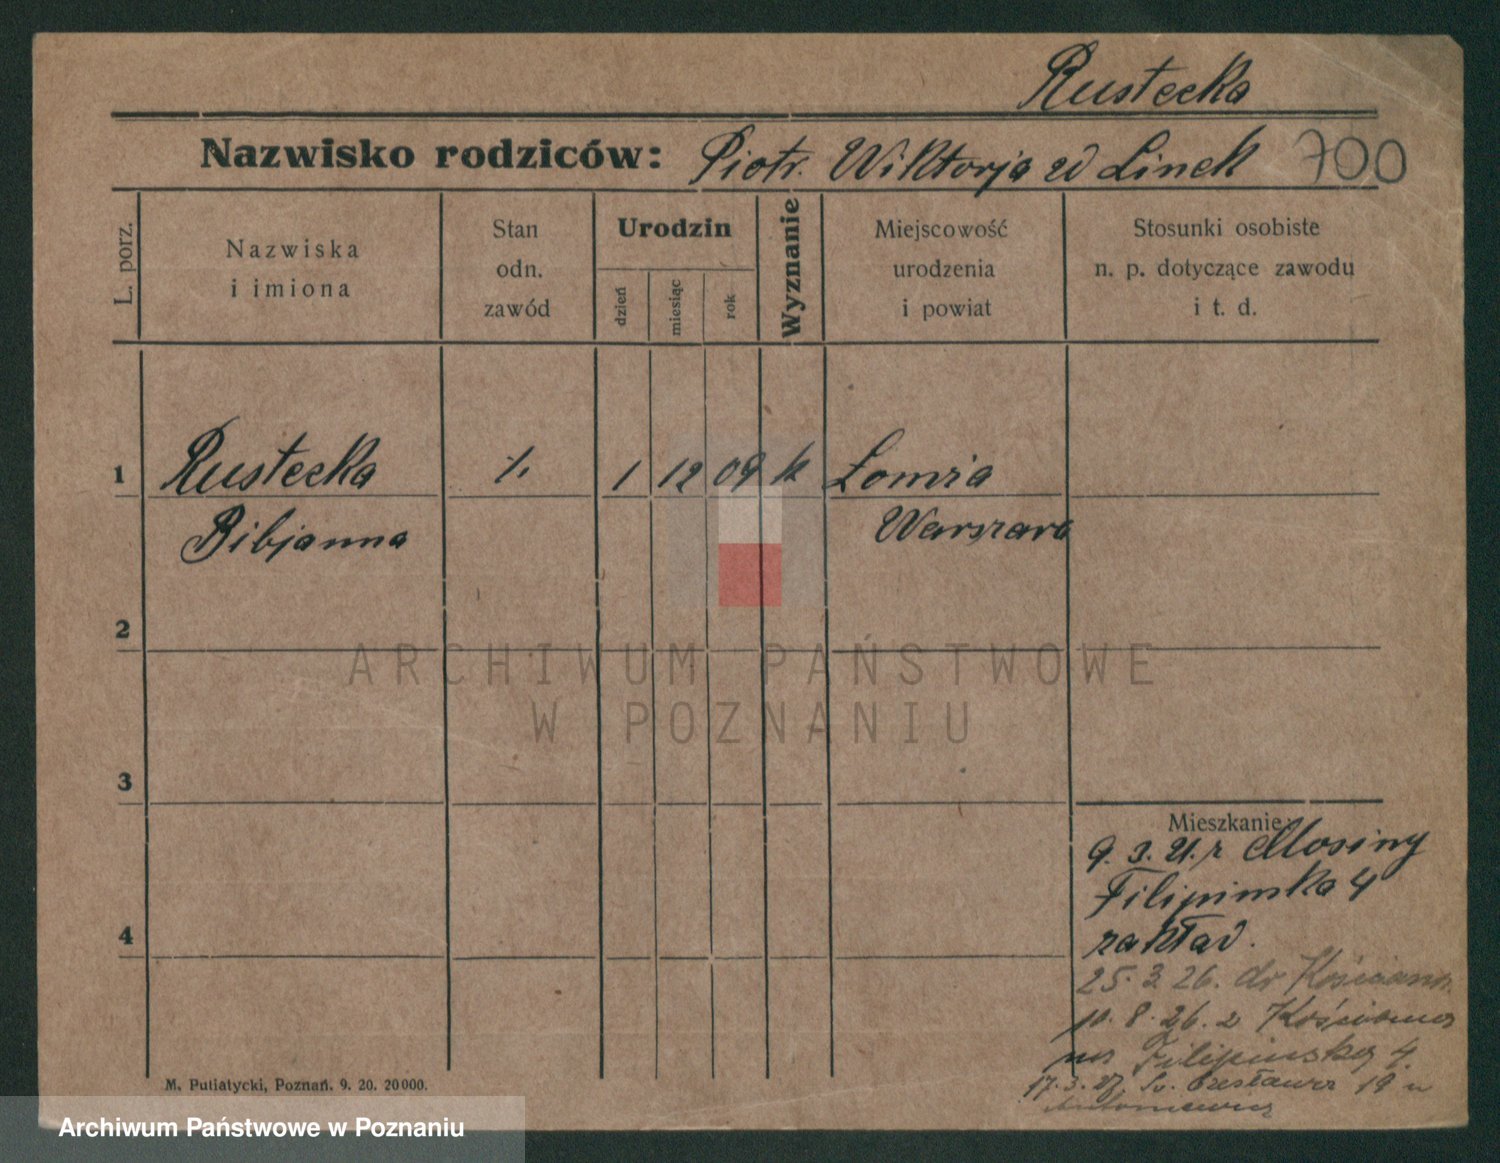 Rustecka
Nazwisko rodziców: Piotr. Wiktorja zd Linek 700
L. porz.
Nazwiska
i imiona
Stan
odn.
zawód
Urodzin
dzień
miesiąc
rok
Wyznanie
Miejscowość
urodzenia
i powiat
Stosunki osobiste
n. p. dotyczące zawodu
i t. d.
1 Rustecka 1 12 09 k Łomża
Bibjanna Warszawa
2
ARCHIWUM PAŃSTWOWE
W POZNANIU
3
Mieszkanie:
9. 3. 21. z Mosiny
Filipinska 4
4
zakład.
25. 3. 26. do Kościana.
10. 8. 26. z Kościana
na Filipinską 4.
17. 3. 27. Sw. Czesława 19 u
M. Putiatycki, Poznań. 9. 20. 20000.
Archiwum Państwowe w Poznaniu